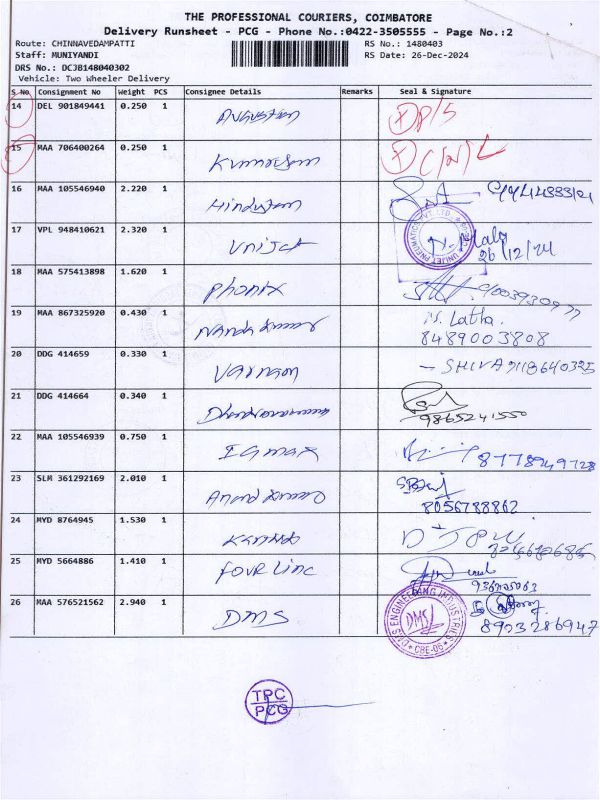 THE PROFESSIONAL COURIERS, COIMBATORE
Delivery Runsheet - PCG - Phone No.:0422-3505555 - Page No.:2
Route: CHINNAVEDAMPATTI RS No.: 1480403
Staff: MUNIYANDI RS Date: 26-Dec-2024
DRS No.: DCJB148040302
Vehicle: Two Wheeler Delivery
S No Consignment No Weight PCS Consignee Details Remarks Seal & Signature
14 DEL 901849441 0.250 1 P/S
15 MAA 706400264 0.250 1
16 MAA 105546940 2.220 1 Hindustan
17 VPL 948410621 2.320 1 Unijet N. Mala
26/12/24
18 MAA 575413898 1.620 1 Phonix
19 MAA 867325920 0.430 1 Nandakumar Latha.
8489003808
20 DDG 414659 0.330 1 - SHIVA 9118640325
21 DDG 414664 0.340 1
9865241550
22 MAA 105546939 0.750 1 IGMAX 8778949728
23 SLM 361292169 2.010 1 Anand Kumar
8056788862
24 MYD 8764945 1.530 1
25 MYD 5664886 1.410 1 Four Linc
26 MAA 576521562 2.940 1 DMS
8923286947
ENGINEERING INDUSTRIES
DMS
CBE-06
TPC
PCG